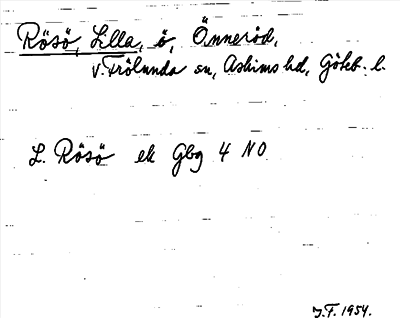 Rösö, Lilla, ö, Önneröd,
V. Frölunda sn, Askims hd, Göteb. l.
L. Rösö ek Gbg 4 NO
J.F. 1954.